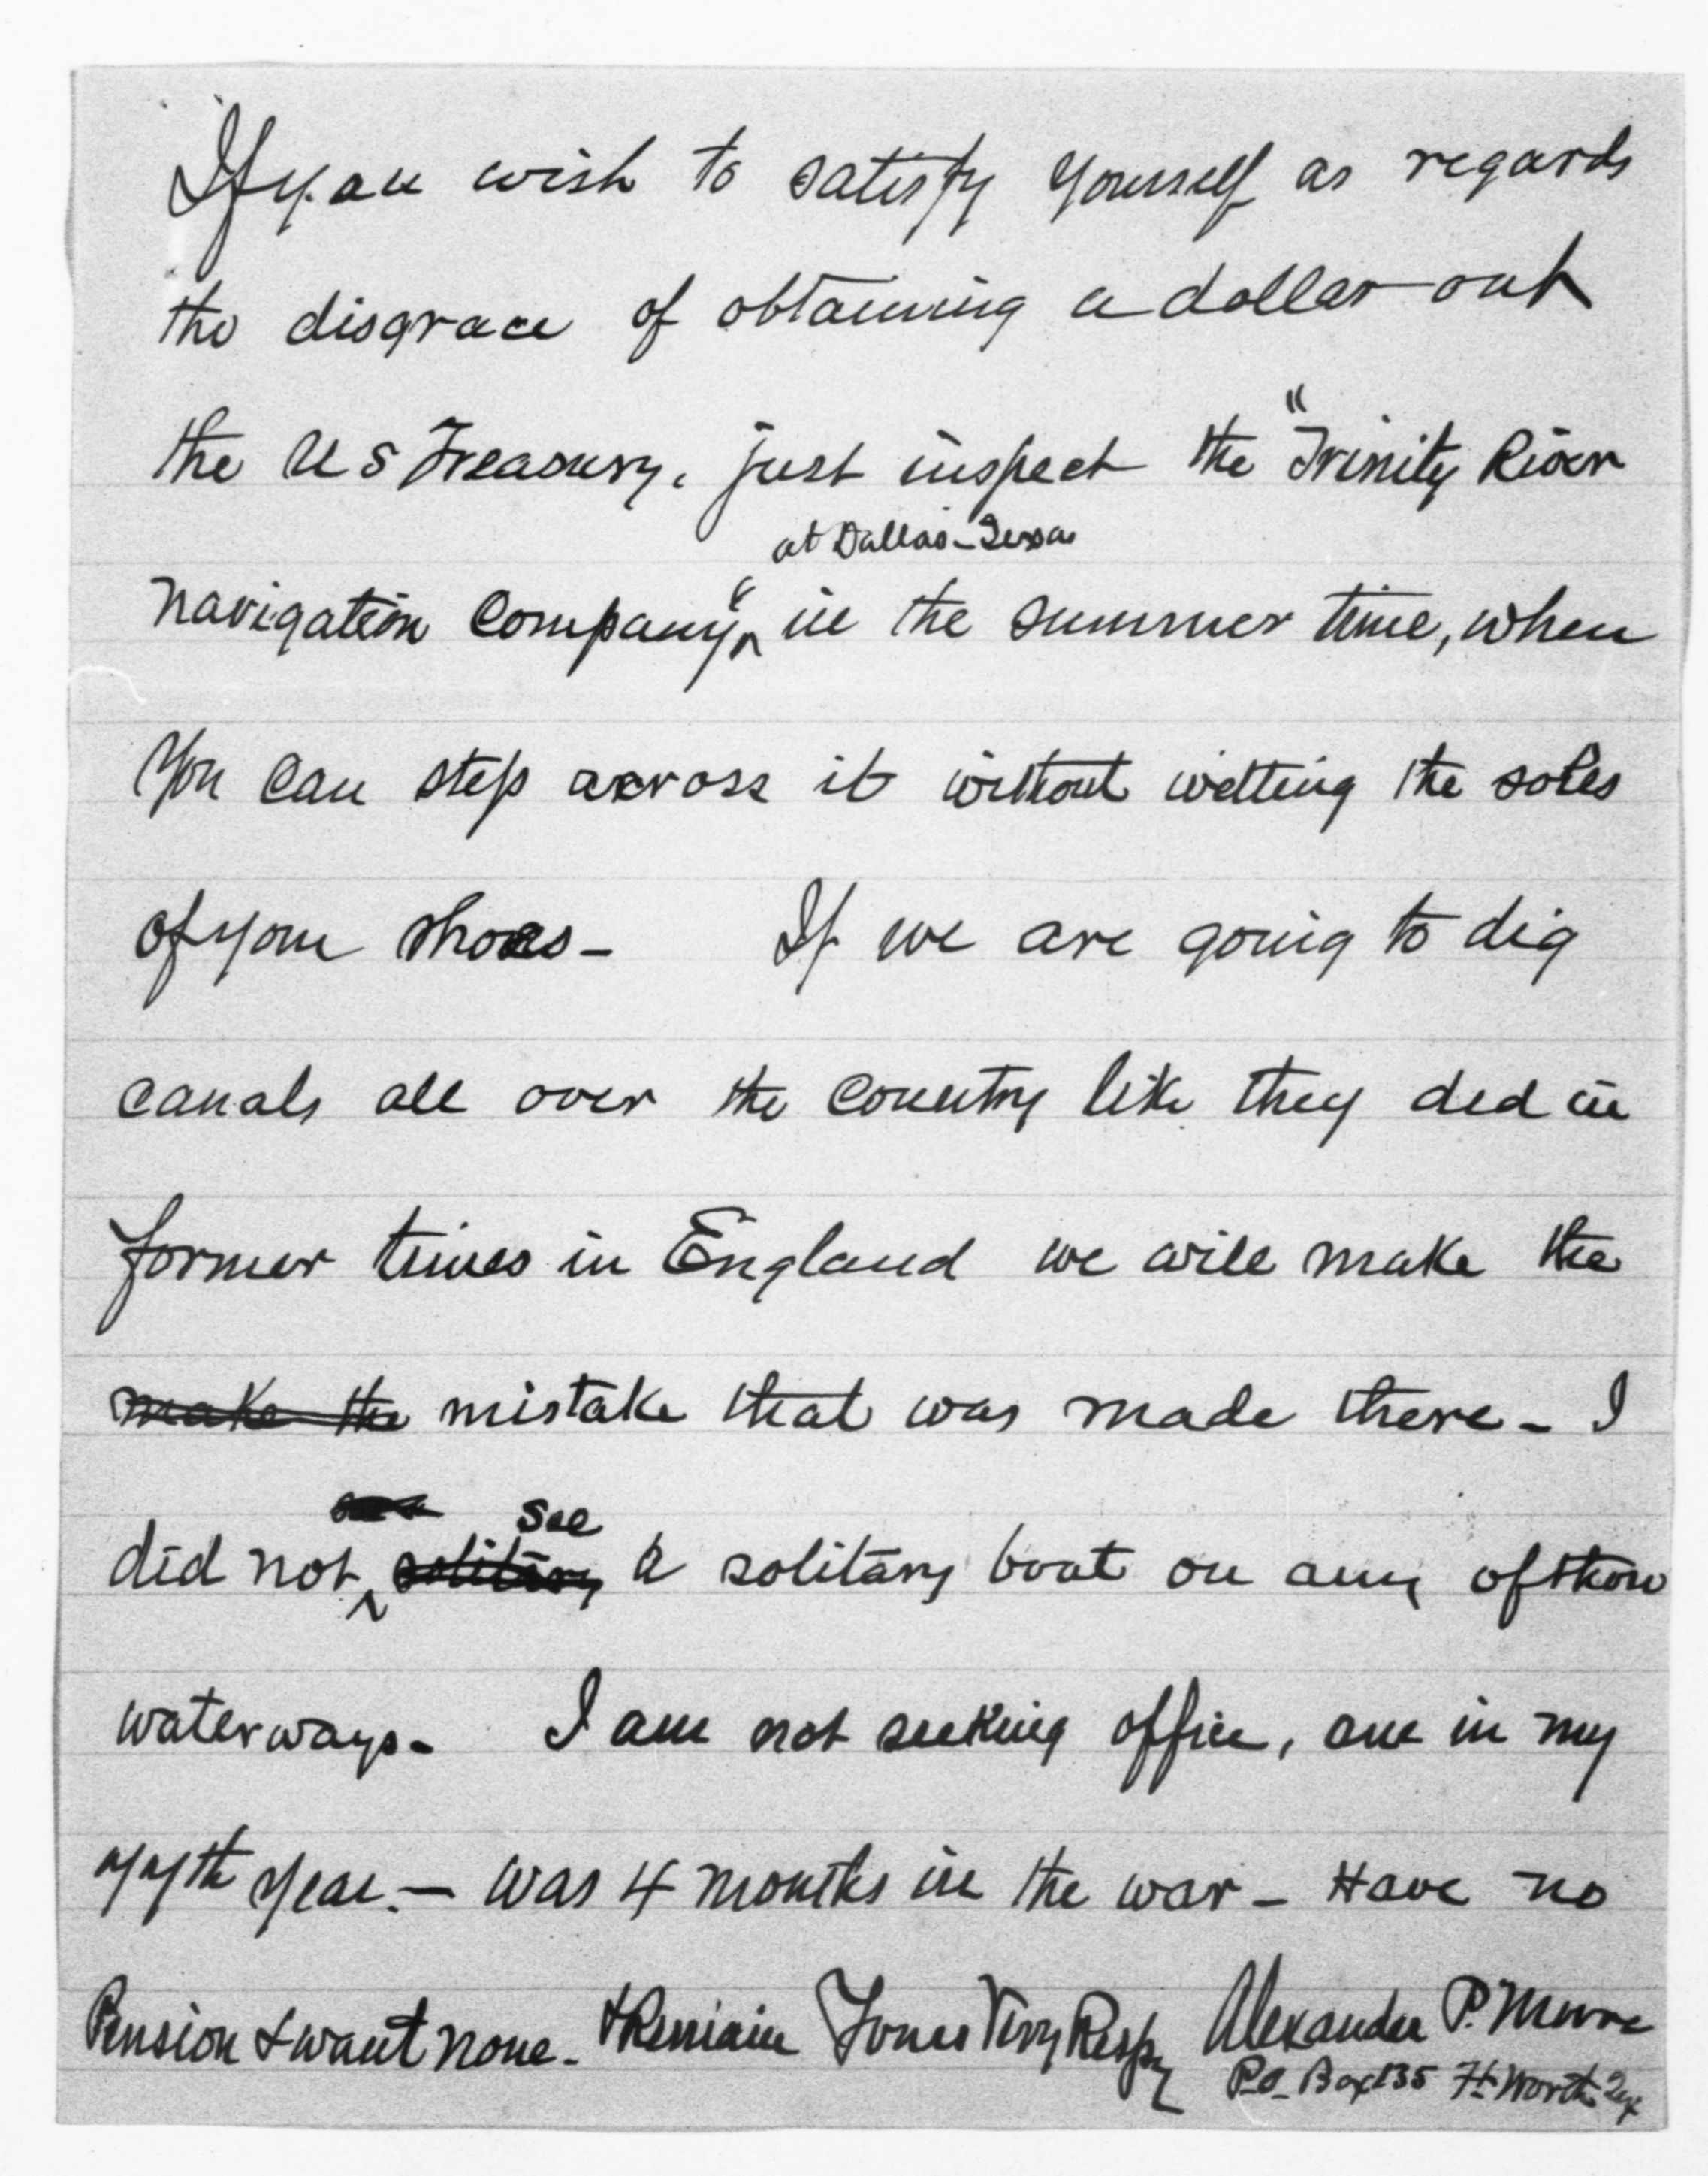 If you wish to satisfy yourself as regards
the disgrace of obtaining a dollar out
the U S Treasury, just inspect the "Trinity River
at Dallas - Texas
Navigation Company" ^ in the summer time, when
You can step across it without wetting the soles
of your shoes - If we are going to dig
canals all over the country like they did in
former times in England we will make the
make the mistake that was made there - I
see
did not ^ solitary a solitary boat on any of their
waterways - I am not seeking office, am in my
77th year. - Was 4 months in the war - Have no
Pension & want none - & Remain Yours Very Respy Alexander P. Moore
P.O. Box 135 Ft Worth Tex